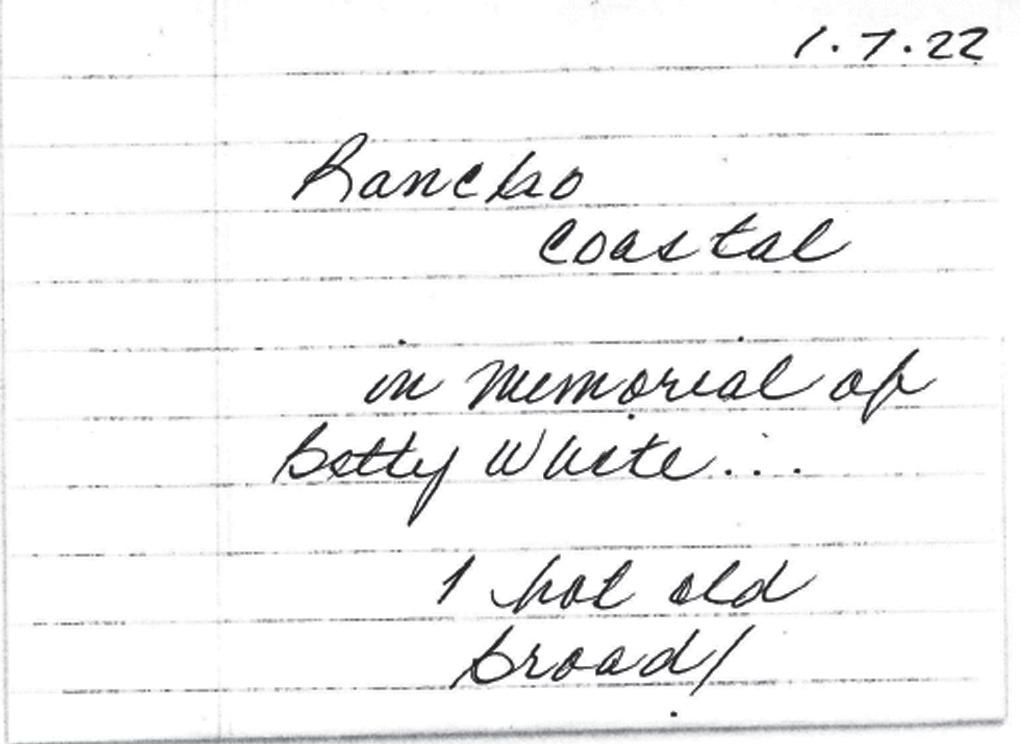 1.7.22
Rancho
Coastal
in memorial of
Betty White...
1 hot old
broad!